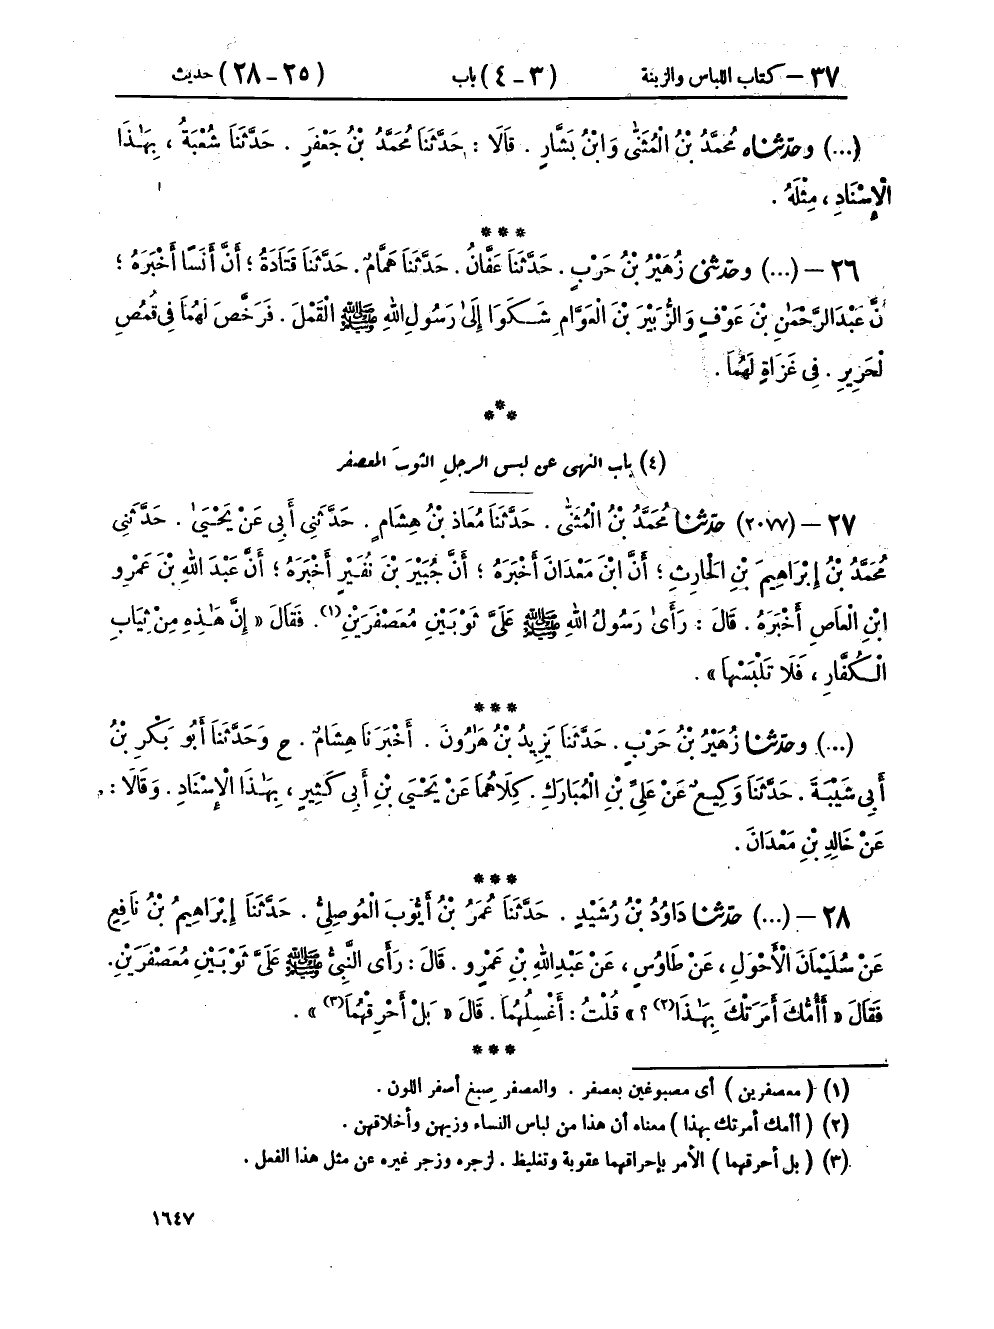 ٣٧ – كتاب اللباس والزينة (٣ – ٤) باب (٢٥ – ٢٨) حديث
(...) وحدّثناه مُحَمَّدُ بْنُ الْمُثَنَّىٰ وَابْنُ بَشَّارٍ . قَالَا : حَدَّثَنَا مُحَمَّدُ بْنُ جَعْفَرٍ . حَدَّثَنَا شُعْبَةُ ، بِهَٰذَا
الْإِسْنَادِ ، مِثْلَهُ .
***
٢٦ – (...) وحدّثنى زُهَيْرُ بْنُ حَرْبٍ . حَدَّثَنَا عَفَّانُ . حَدَّثَنَا هَمَّامٌ . حَدَّثَنَا قَتَادَةُ ؛ أَنَّ أَنَسًا أَخْبَرَهُ ؛
نَّ عَبْدَ الرَّحْمَٰنِ بْنَ عَوْفٍ وَالزُّبَيْرَ بْنَ الْعَوَّامِ شَكَوَا إِلَىٰ رَسُولِ اللهِ ﷺ الْقَمْلَ . فَرَخَّصَ لَهُمَا فِى قُمُصِ
لْحَرِيرِ . فِى غَزَاةٍ لَهُمَا .
***
(٤) باب النهى عن لبس الرجلِ الثوبَ المعصفر
٢٧ – (٢٠٧٧) حدّثنا مُحَمَّدُ بْنُ الْمُثَنَّىٰ . حَدَّثَنَا مُعَاذُ بْنُ هِشَامٍ . حَدَّثَنِى أَبِى عَنْ يَحْيَىٰ . حَدَّثَنِى
مُحَمَّدُ بْنُ إِبْرَاهِيمَ بْنِ الْحَارِثِ ؛ أَنَّ ابْنَ مَعْدَانَ أَخْبَرَهُ ؛ أَنَّ جُبَيْرَ بْنَ نُفَيْرٍ أَخْبَرَهُ ؛ أَنَّ عَبْدَ اللهِ بْنَ عَمْرِو
ابْنِ الْعَاصِ أَخْبَرَهُ . قَالَ : رَأَىٰ رَسُولُ اللهِ ﷺ عَلَىَّ ثَوْبَيْنِ مُعَصْفَرَيْنِ (١) . فَقَالَ « إِنَّ هَٰذِهِ مِنْ ثِيَابِ
الْكُفَّارِ ، فَلَا تَلْبَسْهَا » .
***
(...) وحدّثنا زُهَيْرُ بْنُ حَرْبٍ . حَدَّثَنَا يَزِيدُ بْنُ هَٰرُونَ . أَخْبَرَنَا هِشَامٌ . ح وَحَدَّثَنَا أَبُو بَكْرِ بْنُ
أَبِى شَيْبَةَ . حَدَّثَنَا وَكِيعٌ عَنْ عَلِىِّ بْنِ الْمُبَارَكِ . كِلَاهُمَا عَنْ يَحْيَىٰ بْنِ أَبِى كَثِيرٍ ، بِهَٰذَا الْإِسْنَادِ . وَقَالَا :
عَنْ خَالِدِ بْنِ مَعْدَانَ .
***
٢٨ – (...) حدّثنا دَاوُدُ بْنُ رُشَيْدٍ . حَدَّثَنَا عُمَرُ بْنُ أَيُّوبَ الْمَوْصِلِىُّ . حَدَّثَنَا إِبْرَاهِيمُ بْنُ نَافِعٍ
عَنْ سُلَيْمَانَ الْأَحْوَلِ ، عَنْ طَاوُسٍ ، عَنْ عَبْدِ اللهِ بْنِ عَمْرٍو . قَالَ : رَأَى النَّبِىُّ ﷺ عَلَىَّ ثَوْبَيْنِ مُعَصْفَرَيْنِ .
فَقَالَ « أَأُمُّكَ أَمَرَتْكَ بِهَٰذَا (٢) ؟ » قُلْتُ : أَغْسِلُهُمَا . قَالَ « بَلْ أَحْرِقْهُمَا (٣) » .
***
(١) ( معصفرين ) أى مصبوغين بعصفر . والعصفر صبغ أصفر اللون .
(٢) ( أأمك أمرتك بهذا ) معناه أن هذا من لباس النساء وزيهن وأخلاقهن .
(٣) ( بل أحرقهما ) الأمر بإحراقهما عقوبة وتغليظ . لزجره وزجر غيره عن مثل هذا الفعل .
١٦٤٧